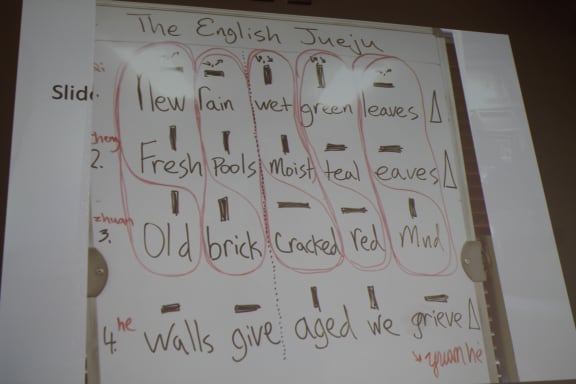 The English Jueju
Slide
New rain wet green leaves
cheng
2. Fresh Pools Moist teal eaves
zhuan
3. Old brick Cracked red Mud
4. he Walls give aged we grieve
yuan he